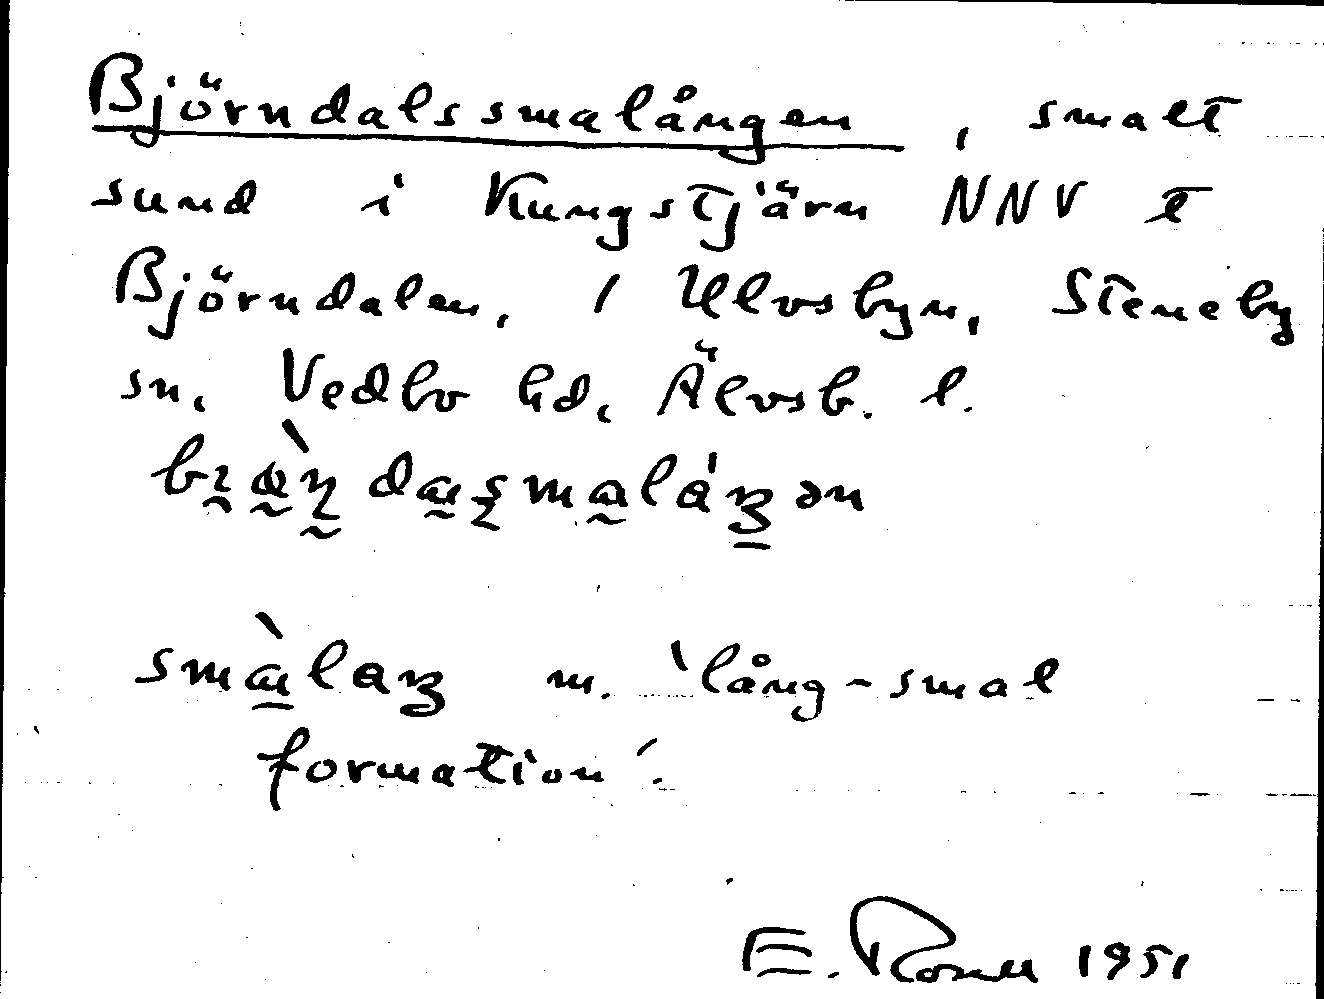 Björndalssmalången, smalt
sund i Kungstjärn NNV t
Björndalen, 1 Ulvsbyn, Steneby
sn, Vedbo hd, Älvsb. l.
smàlaŋ m. 'lång-smal
formation'.
E. 1951